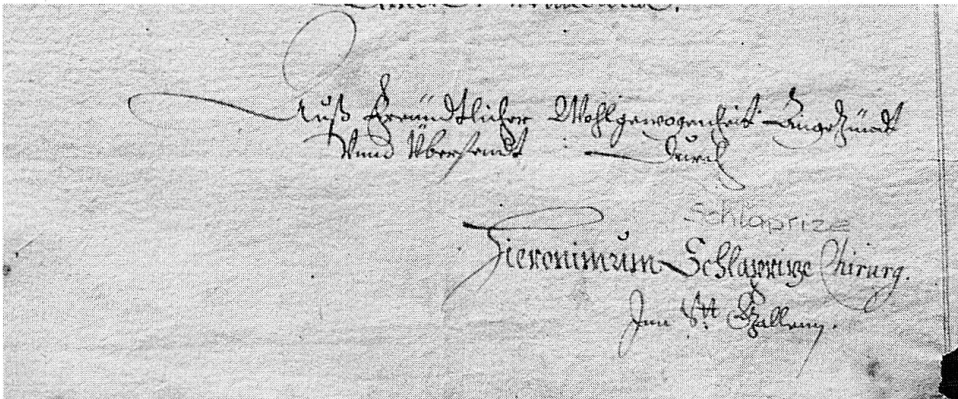 Auß Freündtlicher Wohlgewogenheit
Vnnd Übersendt durch
Schlaprize
Hieronimum Schlapprize Chirurg.
Jnn St. Gallenn.